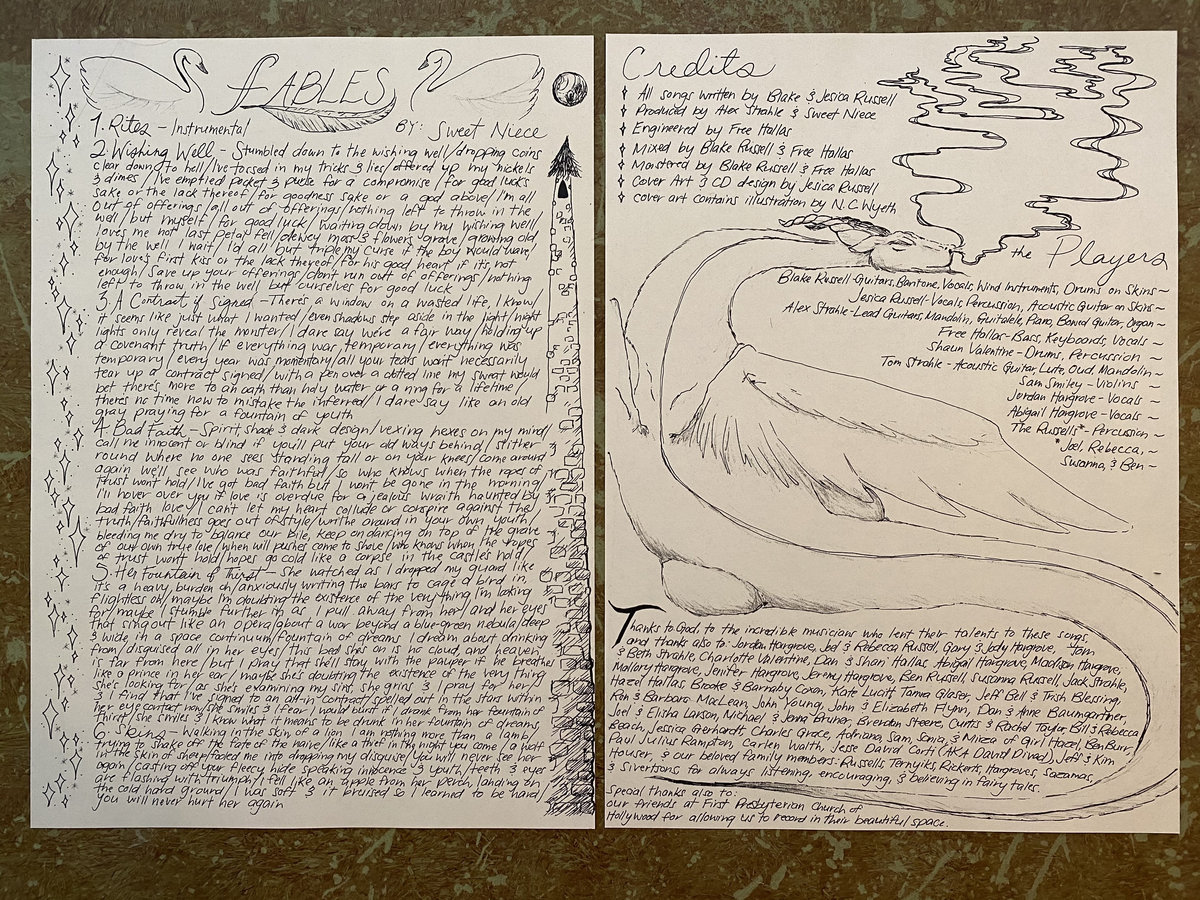 FABLES
BY: Sweet Niece
1. Rites - Instrumental
2. Wishing Well - Stumbled down to the wishing well/dropping coins
clear down to hell/I've tossed in my tricks & lies/offered up my nickels
& dimes /I've emptied pocket & purse for a compromise/for good lucks
sake or the lack thereof, for goodness sake or a god above/I'm all
out of offerings/all out of offerings/nothing left to throw in the
well/but myself, for good luck/waiting down by my wishing well/
loves me not last petal fell/dewey moss & flowers grave/growing old
by the well I wait/I'd all but triple my curse if the boy would wave/
for loves first kiss or the lack thereof/for his good heart if its not
enough/save up your offerings/dont run out of offerings/nothing
left to throw in the well but ourselves for good luck
3. A Contract if Signed - There's a window on a wasted life, I know/
it seems like just what I wanted/even shadows step aside in the light/night
lights only reveal the monster/I dare say we're a fair way/holding up
a covenant truth/If everything was, temporary/everything was
temporary/every year was momentary/all your tears wont necessarily
tear up a contract signed/with a pen over a dotted line my sweat would
bet there's more to an oath than holy water or a ring for a lifetime/
theres no time now to mistake the inferred/I dare say like an old
gray praying for a fountain of youth
4. Bad Faith - Spirit, shade & dark design/vexing hexes on my mind/
call me innocent or blind if you'll put your old ways behind/slither
round where no one sees standing tall or on your knees/come around
again we'll see who was faithful/so who knows when the ropes of
trust wont hold/I've got bad faith but I wont be gone in the morning/
I'll hover over you if love is overdue for a jealous wraith haunted by
bad faith love/I cant let my heart collude or conspire against the
truth/faithfulness goes out of style/writhe around in your own youth/
bleeding me dry to balance our bile, keep on dancing on top of the grave
of our own true love/when will pushes come to shove/who knows when the ropes
of trust wont hold/hopes go cold like a corpse in the castles hold/
5. Her Fountain of Thirst - She watched as I dropped my guard like
it's a heavy burden oh/anxiously writing the bars to cage a bird in,
flightless oh/maybe I'm doubting the existence of the very thing I'm looking
for/maybe I stumble further in as I pull away from her/and her eyes
that sing out like an opera/about a war beyond a blue-green nebula/deep
& wide, in a space continuum/fountain of dreams I dream about drinking
from/disguised all in her eyes/this bed she's on is no cloud, and heaven
is far from here/but I pray that she'll stay with the pauper if he breathes
like a prince in her ear/maybe she's doubting the existence of the very thing
she's looking for/as she's examining my sins, she grins & I pray for her/
I find that I've signed an all-in contract/spelled out in the stars within
her eye contact now/she smiles & I fear I would burst if I drank from her fountain of
thirst/she smiles & I know what it means to be drunk in her fountain of dreams,
6. Skins - Walking in the skin of a lion I am nothing more than a lamb/
trying to shake off the fate of the naive/like a thief in the night you come/a wolf
in the skin of sheep fooled me into dropping my disguise/you will never see her
again/casting off your fleecy hide speaking innocence & youth/teeth & eyes
are flashing with triumph/I fell like an apple from her perch, landing on
the cold hard ground/I was soft & it bruised so I learned to be hard/
you will never hurt her again
Credits
All songs written by Blake & Jesica Russell
Produced by Alex Strahle & Sweet Niece
Engineered by Free Hallas
Mixed by Blake Russell & Free Hallas
Monstered by Blake Russell & Free Hallas
Cover Art & CD design by Jesica Russell
cover art contains illustration by N.C Wyeth
the Players
Blake Russell-Guitars, Baritone, Vocals, Wind Instruments, Drums on Skins~
Jesica Russell-Vocals, Percussion, Accustic Guitar on Skins~
Alex Strahle-Lead Guitars, Mandolin, Guitalele, Piano, Bowed Guitar, Organ~
Free Hallas-Bass, Keyboards, Vocals ~
Shaun Valentine-Drums, Percussion ~
Tom Strahle-Acoustic Guitar, Lute, Oud, Mandolin~
Sam Smiley-Violins ~
Jordan Hargrove-Vocals ~
Abigail Hargrove-Vocals ~
The Russells*-Percussion ~
*Joel, Rebecca, ~
Susanna, & Ben ~
Thanks to God, to the incredible musicians who lent their talents to these songs,
and thanks also to: Jordan Hargrove, Joel & Rebecca Russell, Gary & Jody Hargrove, Tom
& Beth Strahle, Charlotte Valentine, Dan & Shari Hallas Abigail Hargrove, Madison Hargrove,
Mallory Hargrove, Jenifer Hargrove, Jeremy Hargrove, Ben Russell, Susanna Russell, Jack Strahle,
Hazel Hallas, Brooke & Barnaby Conan, Kate Lucitt Tamra Glaser, Jeff Bell & Trish Blessing,
Ken & Barbara MacLean, John Young, John & Elizabeth Flynn, Dan & Anne Baumgartner,
Joel & Elisha Larson, Michael & Jenna Bruner, Brendan Steere, Curtis & Rachel Taylor Bill & Rebecca
Beach, Jessica Gerhardt, Charles Grace, Adriana, Sam, Sonia, & Mirza of Girl Hazel, Ben Burr,
Paul Julius Rampton, Carlen Walth, Jesse David Corti (AKA David Divad) Jeff & Kim
Houser, & our beloved family members: Russells Ternyiks, Rickerts, Hargroves, Sazamas,
& Sivertsons for always listening, encouraging, & believing in fairy tales.
Special thanks also to:
our friends at First Presbyterian Church of
Hollywood for allowing us to record in their beautiful space.